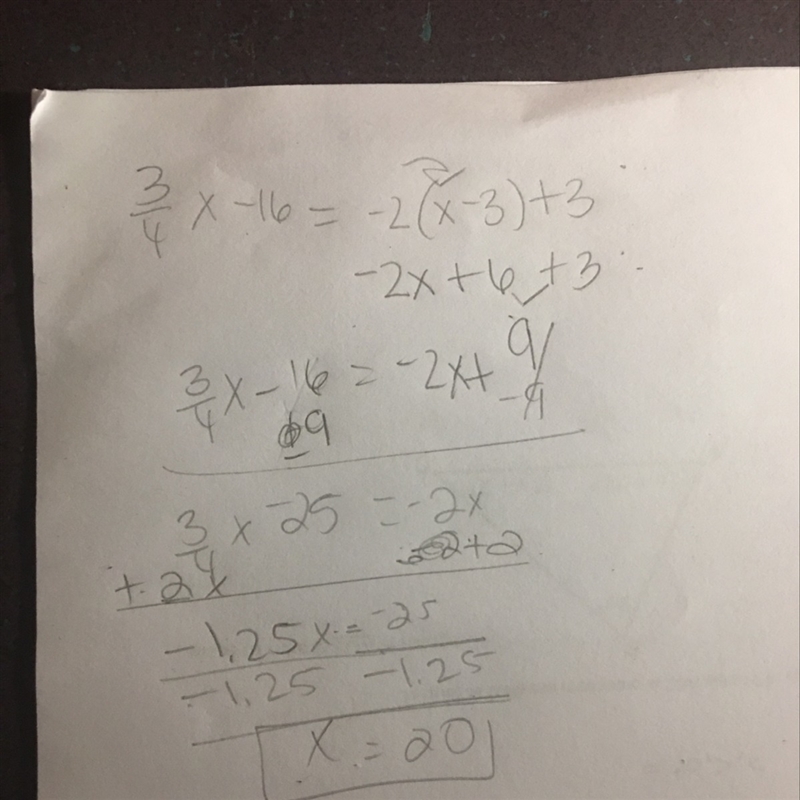 3/4 x - 16 = -2(x - 3) + 3
-2x + 6 + 3
9
3/4 x - 16 = -2x +
-9 -9
3/4 x - 25 = -2x
+ 2x +2
-1.25x = -25
-1.25 -1.25
x = 20